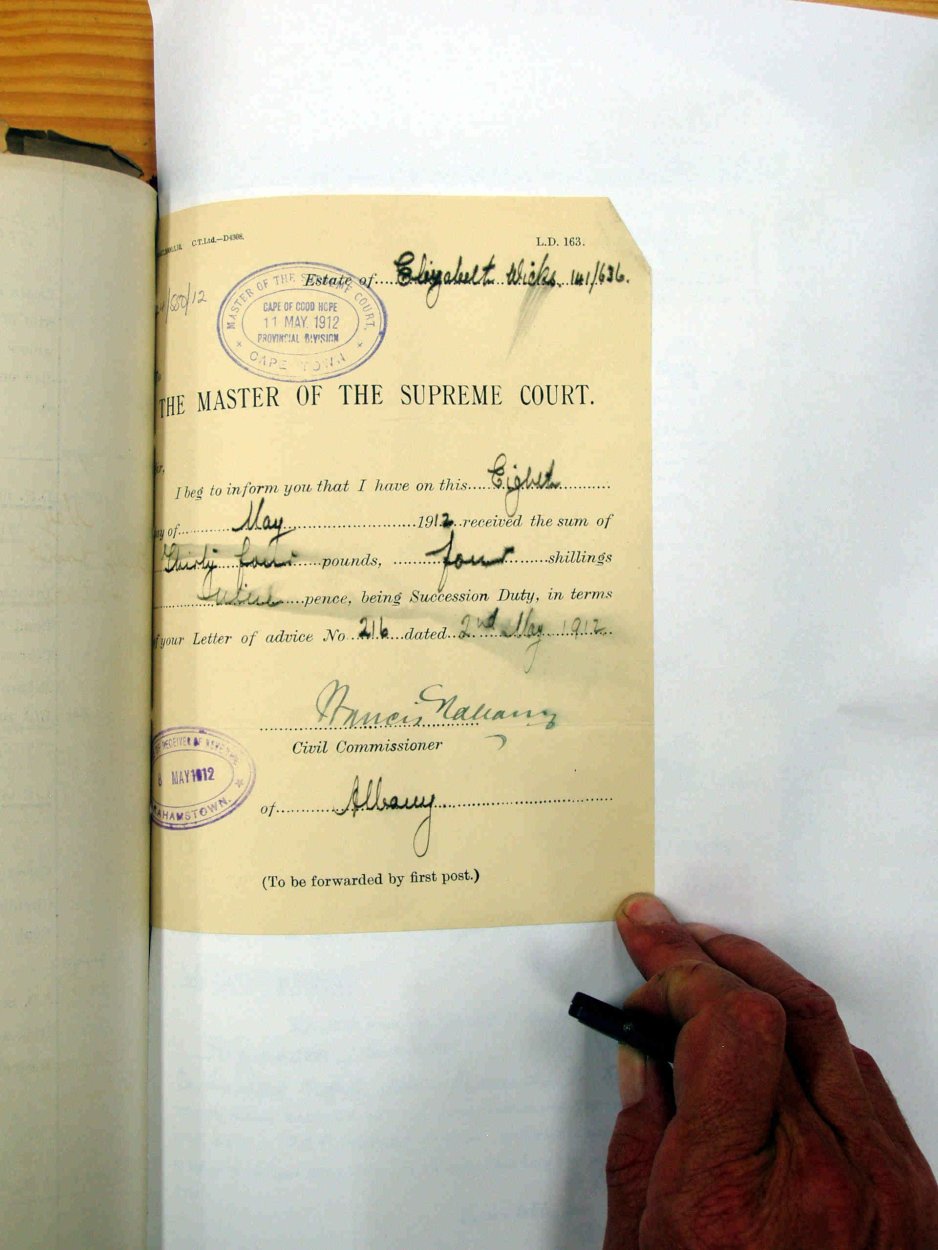 C.T.Ltd.—D4308.
L.D. 163.
Estate of Elizabeth Wicks. 141/636.
/650/12
MASTER OF THE SUPREME COURT.
CAPE OF GOOD HOPE
11 MAY. 1912
PROVINCIAL DIVISION
CAPE TOWN
THE MASTER OF THE SUPREME COURT.
I beg to inform you that I have on this Eighth
of May 1912 received the sum of
Thirty four pounds, four shillings
pence, being Succession Duty, in terms
of your Letter of advice No 216 dated 2nd May 1912.
Francis
Civil Commissioner
RECEIVER OF REVENUE
8 MAY 1912
RAHAMSTOWN.
of Albany.
(To be forwarded by first post.)